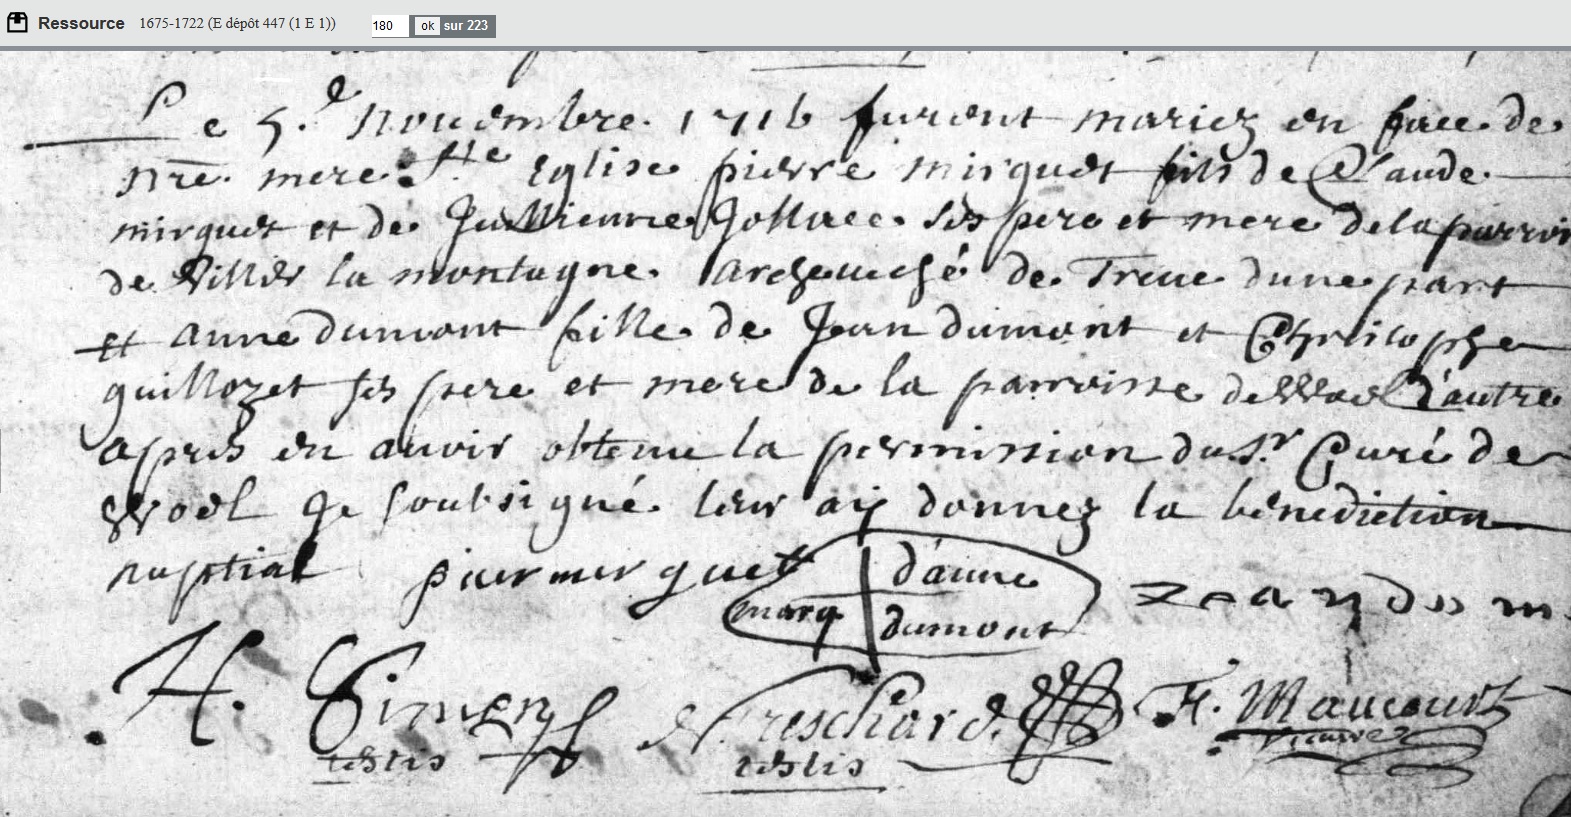 Ressource 1675-1722 (E dépôt 447 (1 E 1)) 180 ok sur 223
Le 5.e Novembre 1716 furent mariez en face de
nre. mere Ste Eglise pierre mirquet fils de Claude
mirquet et de Jullienne Jollure ses pere et mere de la parroi
de Viller la montagne archeuesché de Treue dune part
et anne dumont fille de Jean dumont et Christophe
guillozet ses pere et mere de la parroisse de Woel d'autre
apres en auoir obtenu la permission du Sr Curé de
Woel Je soubsigné leur aÿ donnez la bénédiction
nuptial pier mirquet marq d'anne dumont Zean du m
H. testis testis H. Maucourt